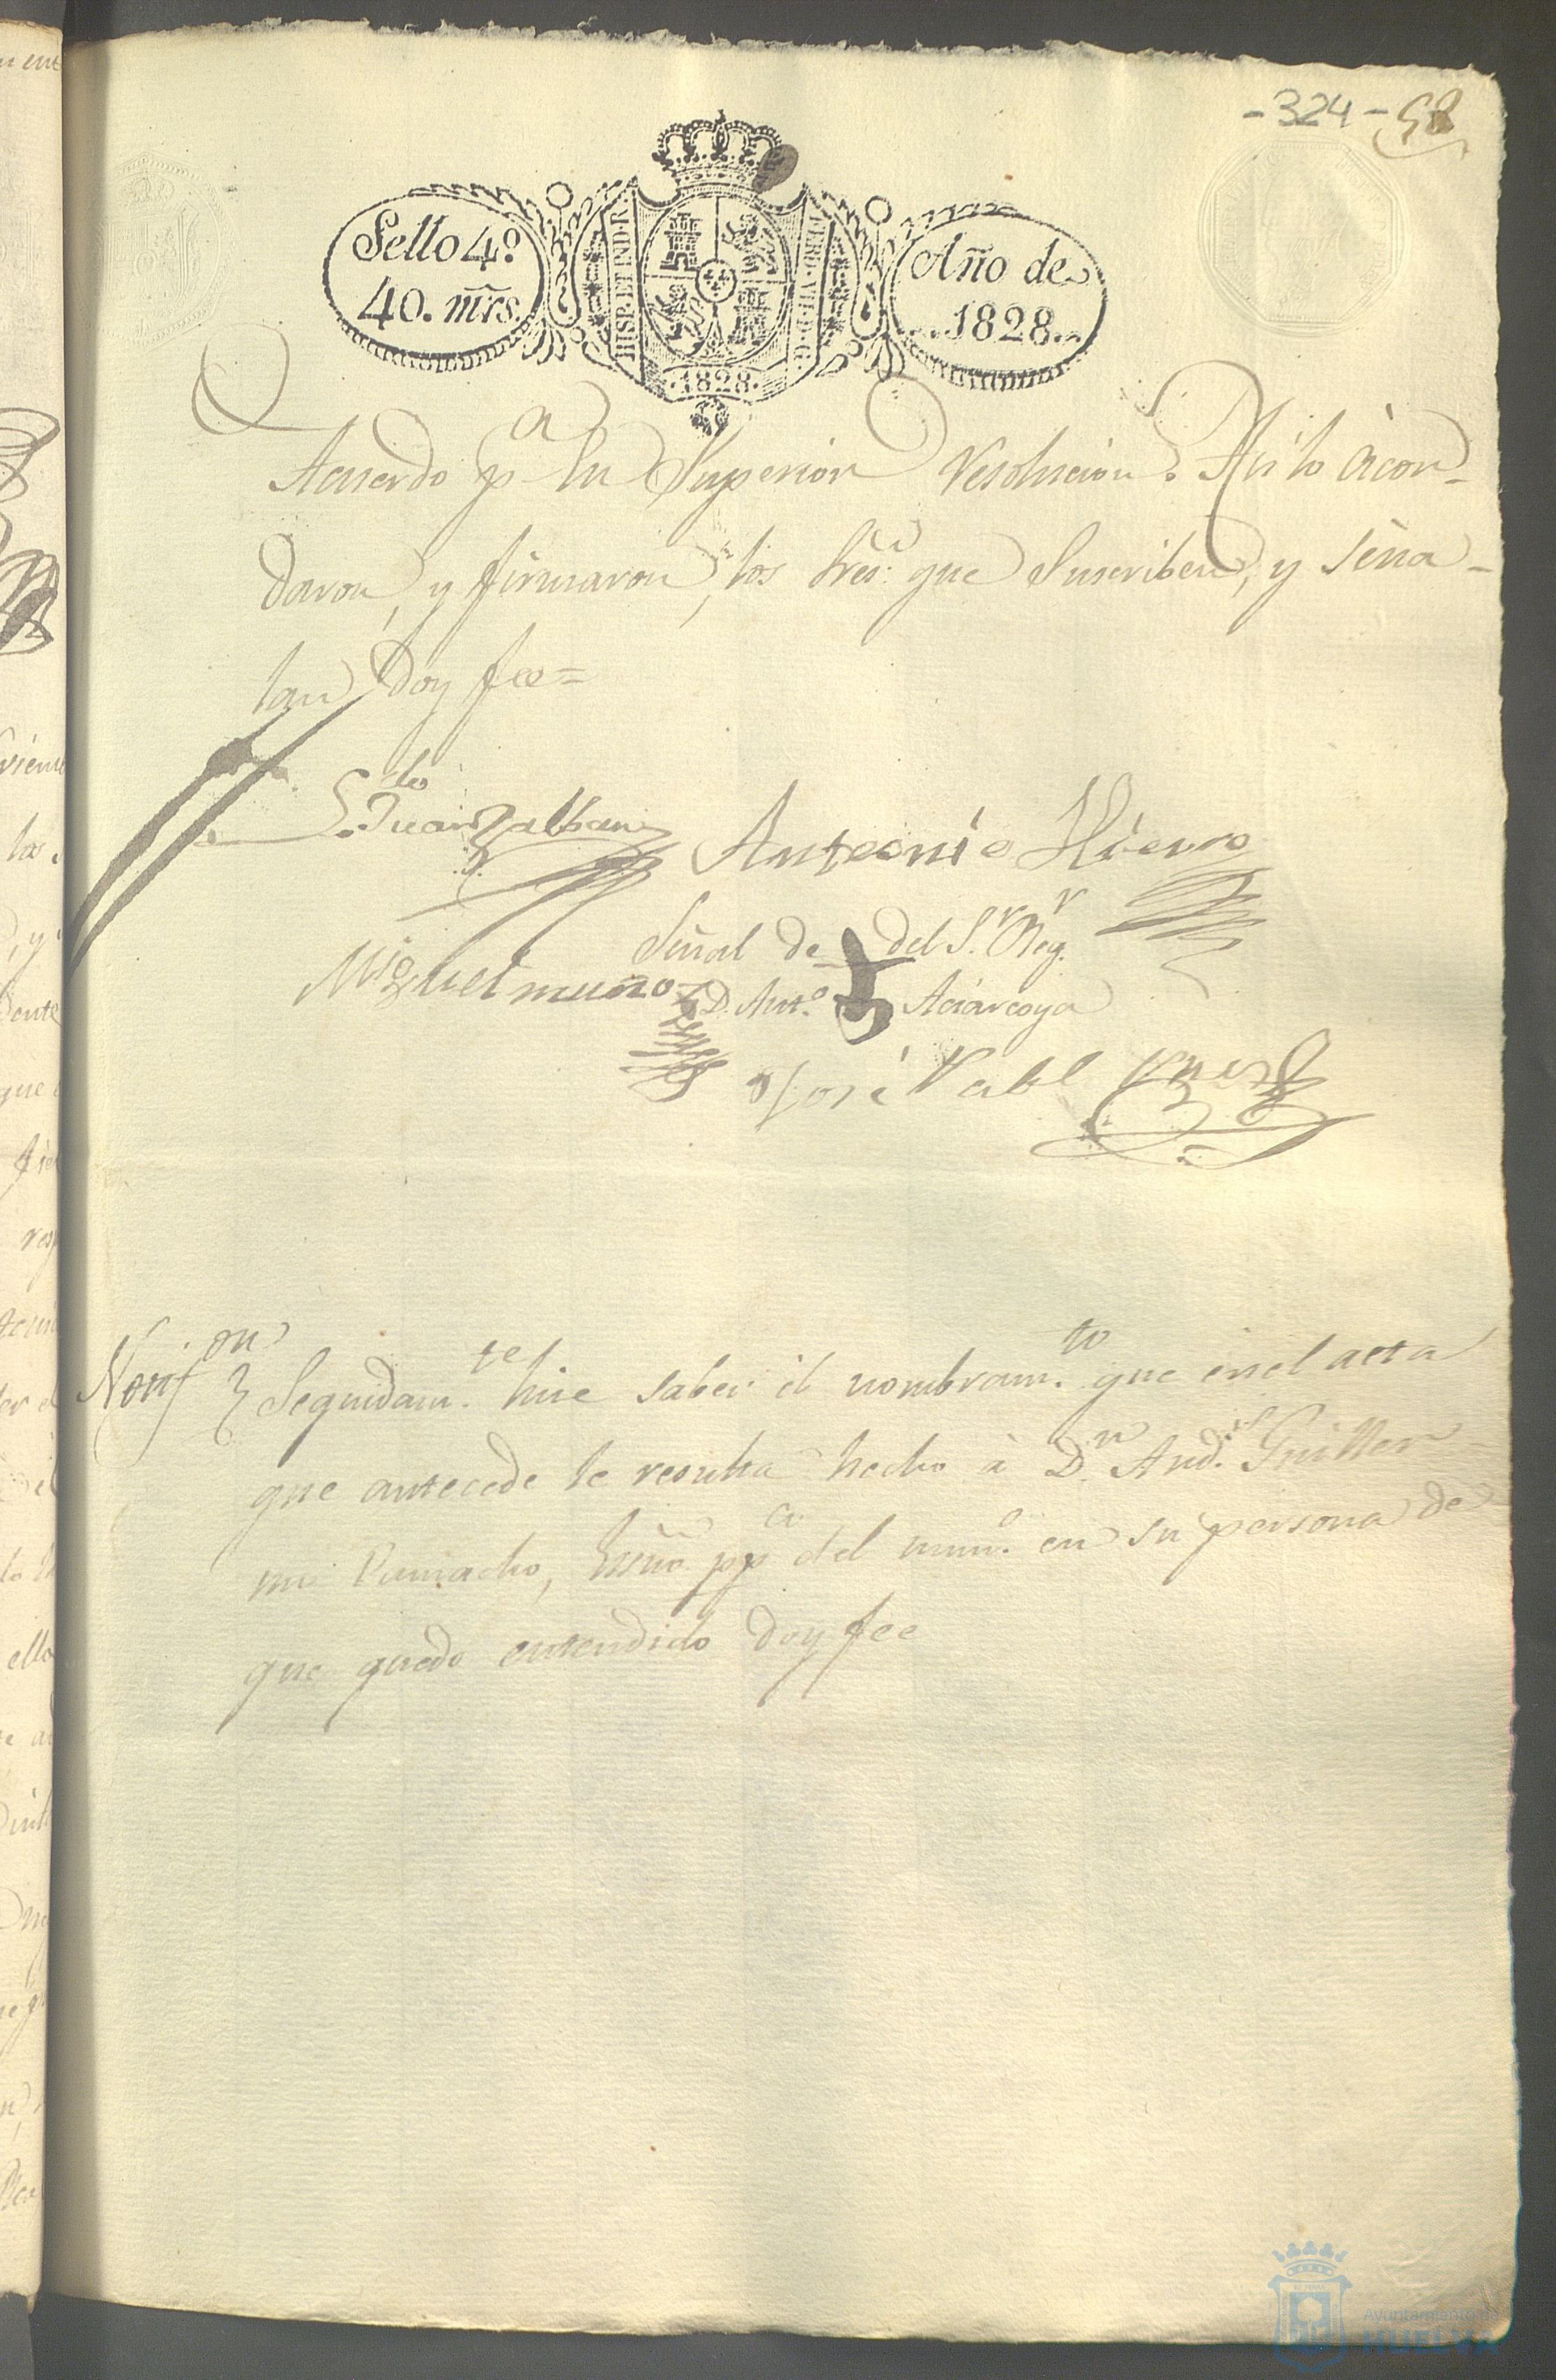 -324- 58
Sello 4º
40. mrs.
HISP. ET IND. R.
FERD. VII. D. G.
1828.
Año de
1828.
Acuerdo pª su Superior resolucion. Asi lo acor-
daron, y firmaron, los Sres. que Suscriben, y seña-
lan Doy fee=
Juan
Antoonio Hierro
Señal de del Sr. Regr.
Miguel muñoz
D. Antº.
José
Notifon
Seguidamte. hise saber él nombramto. que en el acta
que antecede le resulta hecho à Dn. Andrs. Guiller-
mo Camacho, pppca del en su persona de
que quedo entendido doy fee
Ayuntamiento de
HUELVA